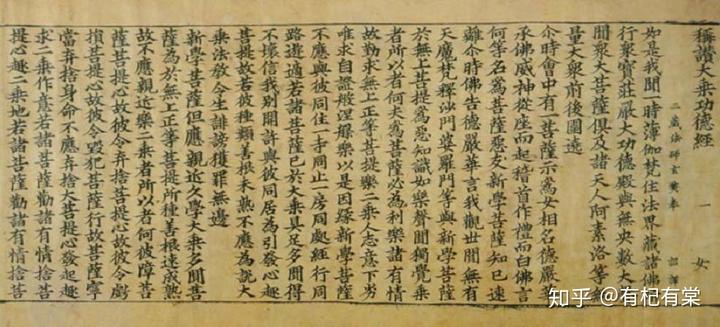 稱讚大乘功德經 一 女
三藏法師玄奘奉 詔譯
如是我聞一時薄伽梵住法界藏諸佛所
行衆寶莊嚴大功德殿與無央數大聲
聞衆大菩薩俱及諸天人阿素洛等無
量大衆前後圍遶
尒時會中有一菩薩示爲女相名德嚴華
承佛威神從座而起稽首作禮而白佛言
何等名爲菩薩惡友新學菩薩知已速
離尒時佛告德嚴華言我觀世間無有
天魔梵釋沙門婆羅門等與新學菩薩
於無上菩提爲惡知識如樂聲聞獨覺乘
者所以者何夫爲菩薩必爲利樂諸有情
故勤求無上正等菩提樂二乘人志意下劣
唯求自證般涅槃樂以是因緣新學菩薩
不應與彼同住一寺同止一房同處經行同
路遊適若諸菩薩已於大乘具足多聞得
不壞信我別開許與彼同居爲引發心趣
菩提故若彼種類善根未熟不應爲說大
乘法教令生誹謗獲罪無邊
新學菩薩但應親近久學大乘多聞菩
薩爲於無上正等菩提所種善根速成熟
故不應親近樂二乘者所以者何彼障菩
薩菩提心故彼令弃捨菩提心故彼令虧
損菩提心故彼令毀犯菩薩行故菩薩寧
當弃捨身命不應弃捨大菩提心發起趣
求二乘作意若諸菩薩勸諸有情捨菩
提心趣二乘地若諸菩薩勸諸有情捨菩
知乎 @有杞有棠